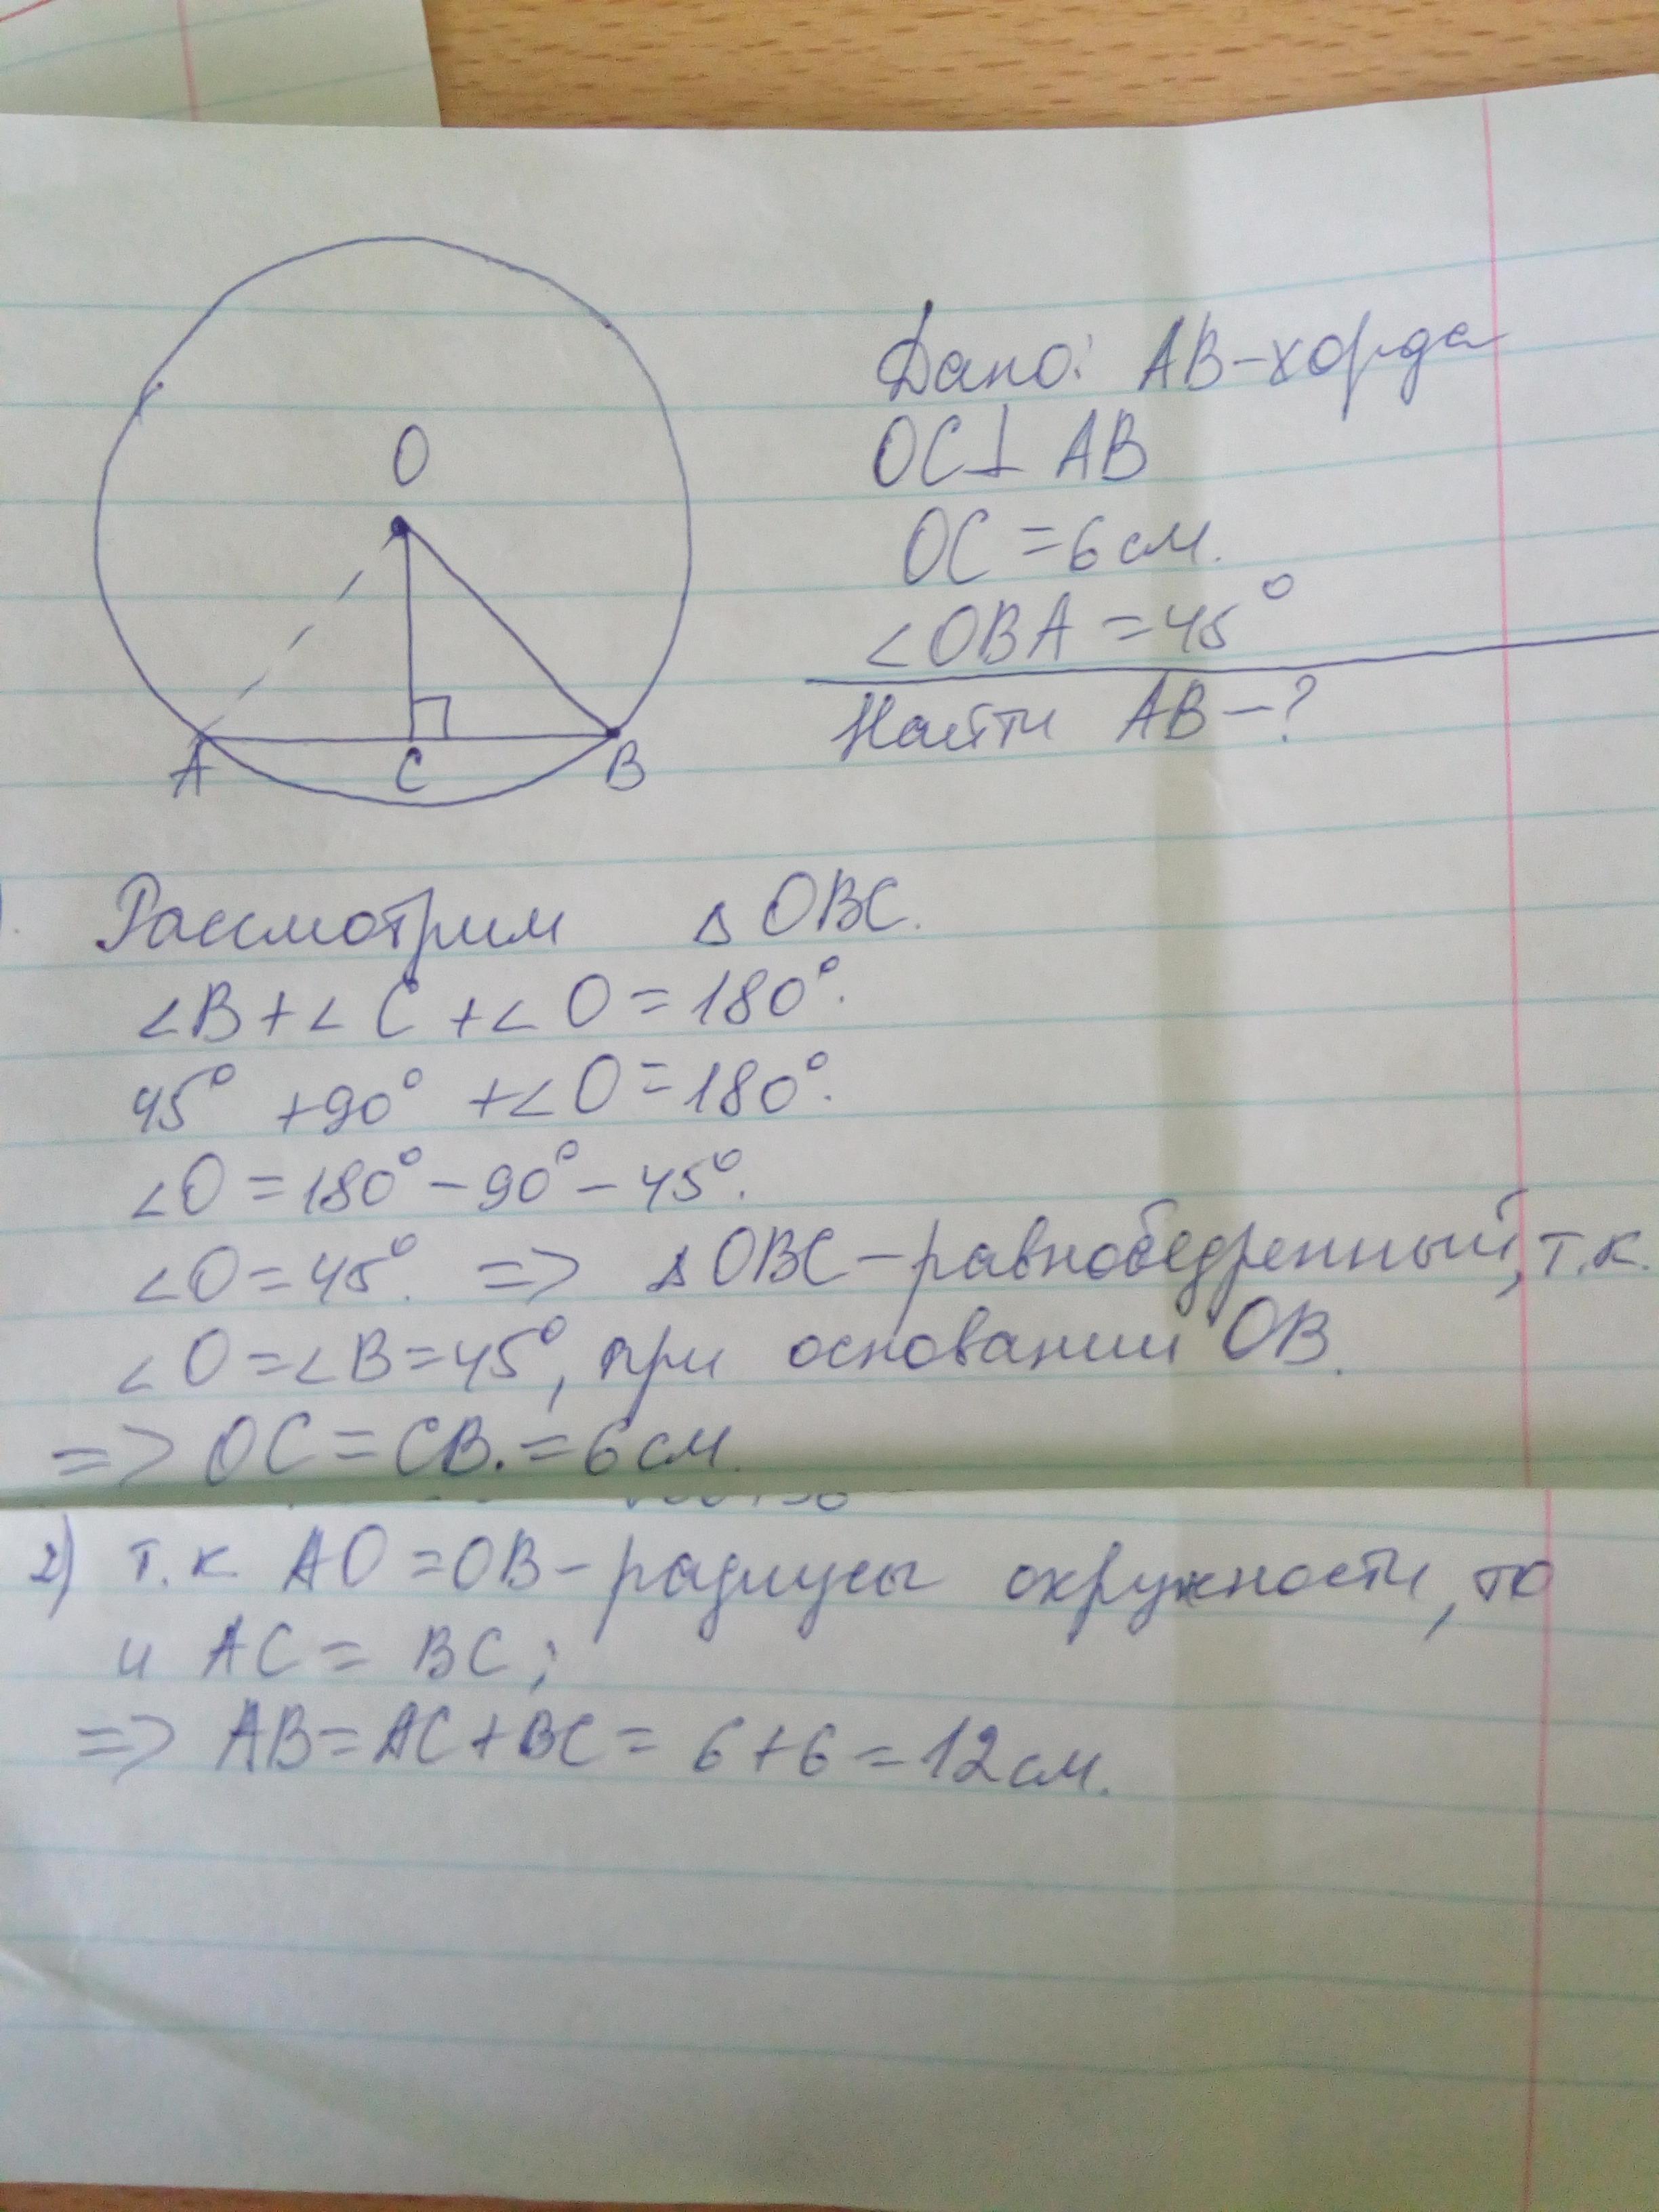 O
A
C
B
Дано: AB-хорда
OC⊥AB
OC=6см.
∠OBA=45°
Найти AB-?
Рассмотрим ▵OBC.
∠B+∠C+∠O=180°.
45°+90°+∠O=180°.
∠O=180°-90°-45°.
∠O=45°. => ▵OBC-равнобедренный, т.к.
∠O=∠B=45°, при основании OB.
=> OC=CB.=6см.
2) т.к AO=OB-радиусы окружности, то
и AC=BC;
=> AB=AC+BC=6+6=12см.